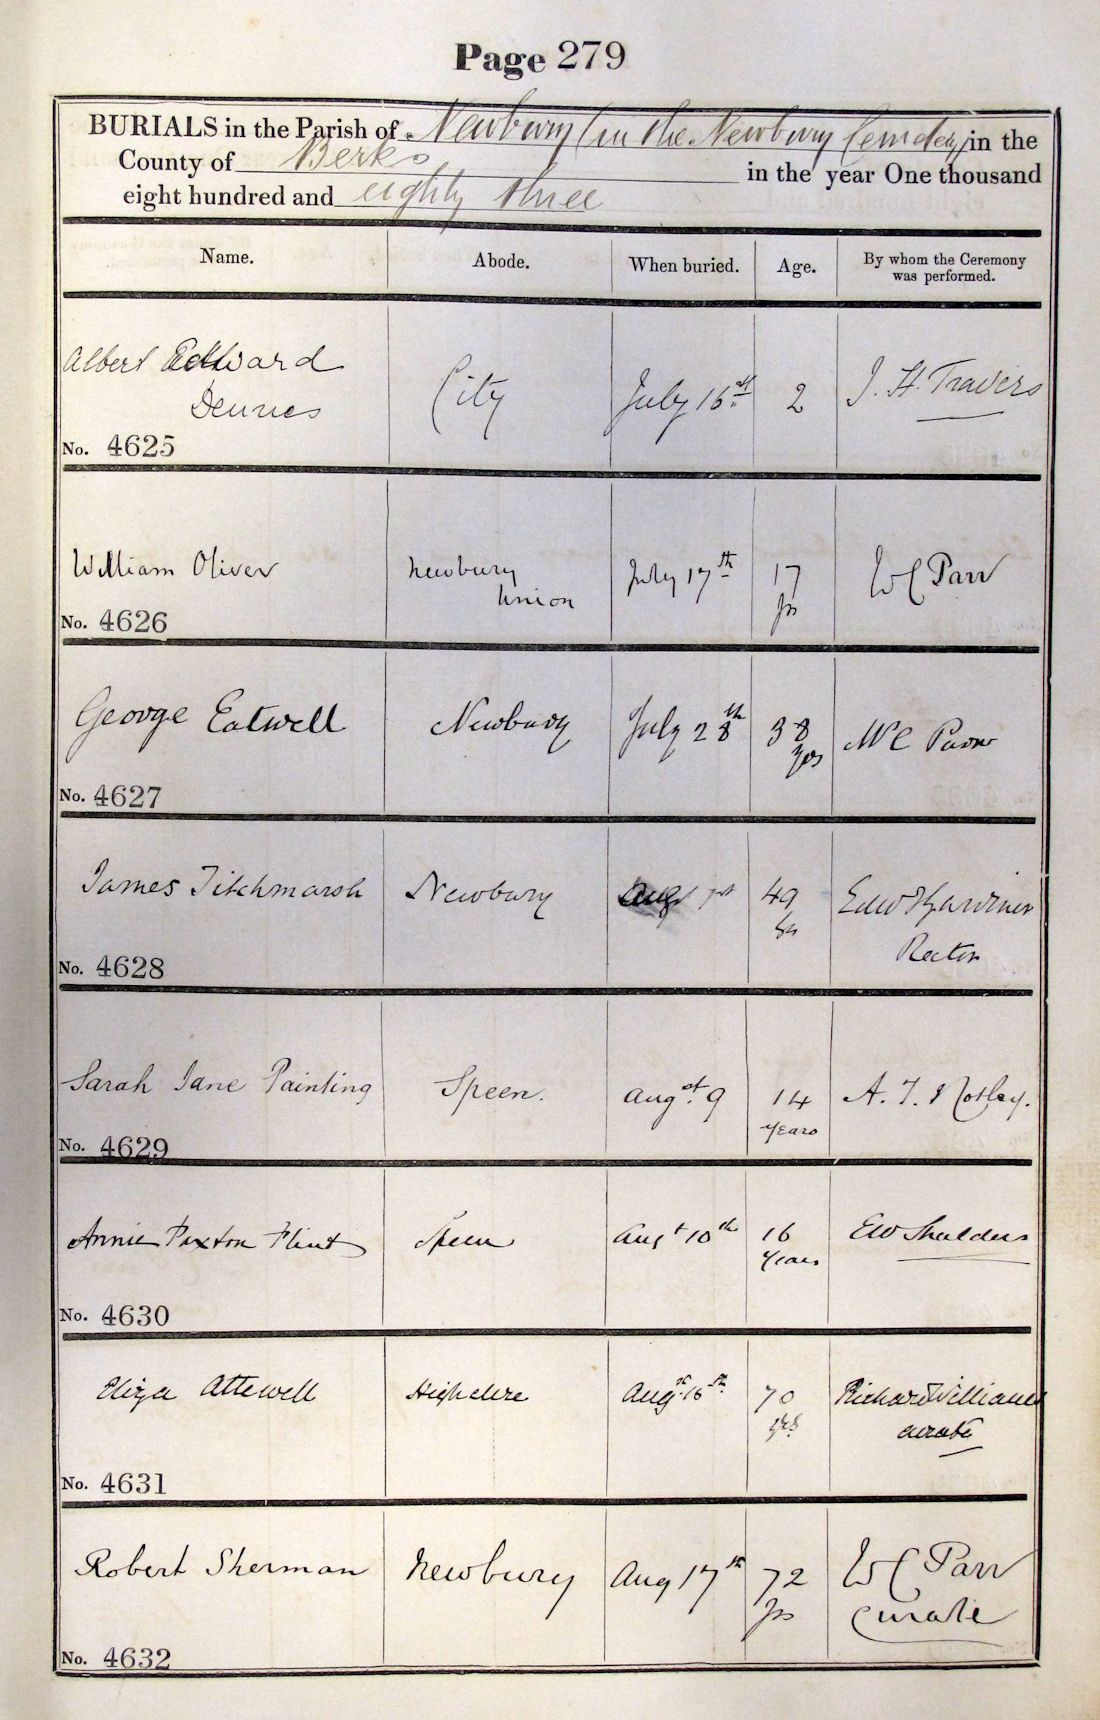 Page 279
BURIALS in the Parish of Newbury (in the Newbury Cemetery) in the
County of Berks in the year One thousand
eight hundred and eighty three
Name. Abode. When buried. Age. By whom the Ceremony
was performed.
Albert Edward City July 16 2 J. H. Travers
Dennes
No. 4625
William Oliver Newbury July 17th 17 W C Parr
Union yrs
No. 4626
George Eatwell Newbury July 28th 38 W C Parr
yrs
No. 4627
James Titchmarsh Newbury Aug 1st 49 Edw Gardiner
yrs Rector
No. 4628
Sarah Jane Painting Speen. Augst. 9 14 A. T.
years
No. 4629
Annie Paxton Flint Speen Augt 10th 16 EW Shalders
years
No. 4630
Eliza Attewell Highclere Augst. 15th. 70 Richard Williams
yrs curate
No. 4631
Robert Sherman Newbury Aug 17th 72 W C Parr
yrs curate
No. 4632